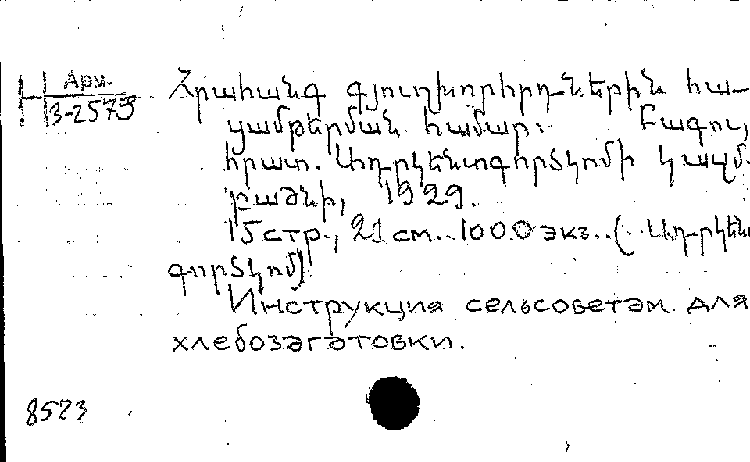 Арм.
Н 3-2575
Հրահանգ գյուղխորհրդ-ներին հա-
ցամթերման համար: Բագու,
հրատ. Ադրկենտգործկոմի կազմ.
բաժնի, 1929.
15 стр., 21 см. 1000 экз. (Ադրկենտ
գործկոմ)
Инструкция сельсоветам для
хлебозаготовки.
8523